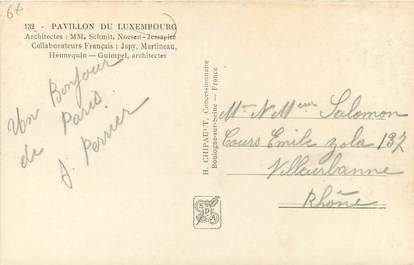 6€
132 - PAVILLON DU LUXEMBOURG
Architectes : MM. Schmit, Noesen
Collaborateurs Français : Japy, Martineau,
Hennequin — Guimpel, architectes
Un Bonjour
de Paris
J. Perrier
H. CHIPAULT, Concessionnaire
Boulogne-sur-Seine - France
Mr Salomon
Cours Emile Zola 137
Villeurbanne
Rhône